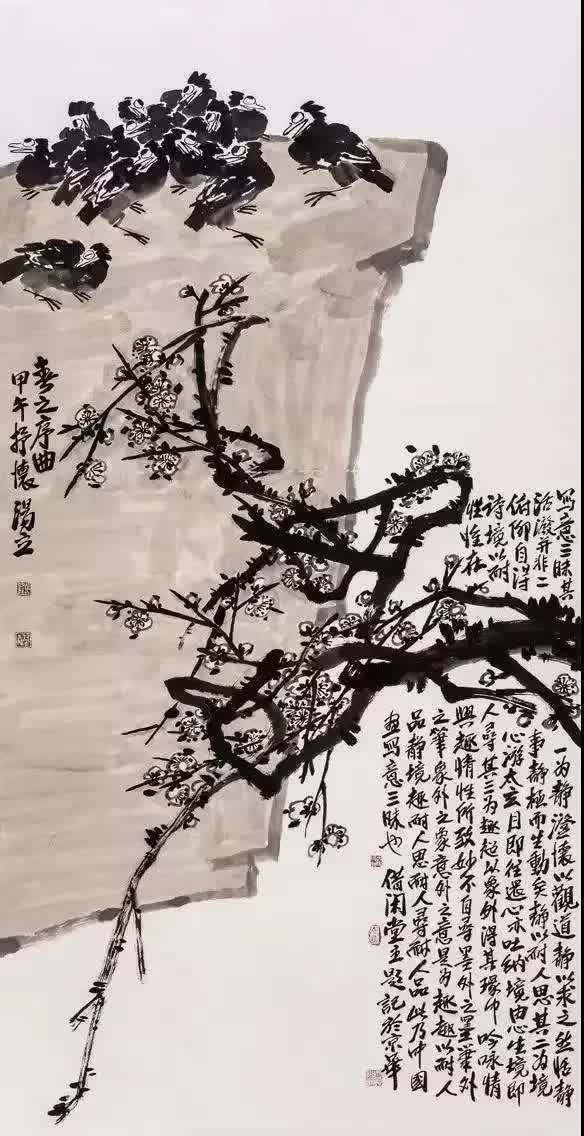 春之序曲
甲午抒懷 湯立
写意三昧其一为静澄懷以觀道静以求之然恬静
活潑并非二事静極而生動矣静以耐人思其二为境
俯仰自得心游太玄目即往還心亦吐纳境由心生境即
诗境以耐人尋其三为趣趣以象外得其環中吟咏情
性在興趣情性所致妙不自尋墨外之墨筆外
之筆象外之象意外之意是为趣趣以耐人
品静境趣耐人思耐人尋耐人品此乃中國
畫寫意三昧也 借閑堂主題記於京華